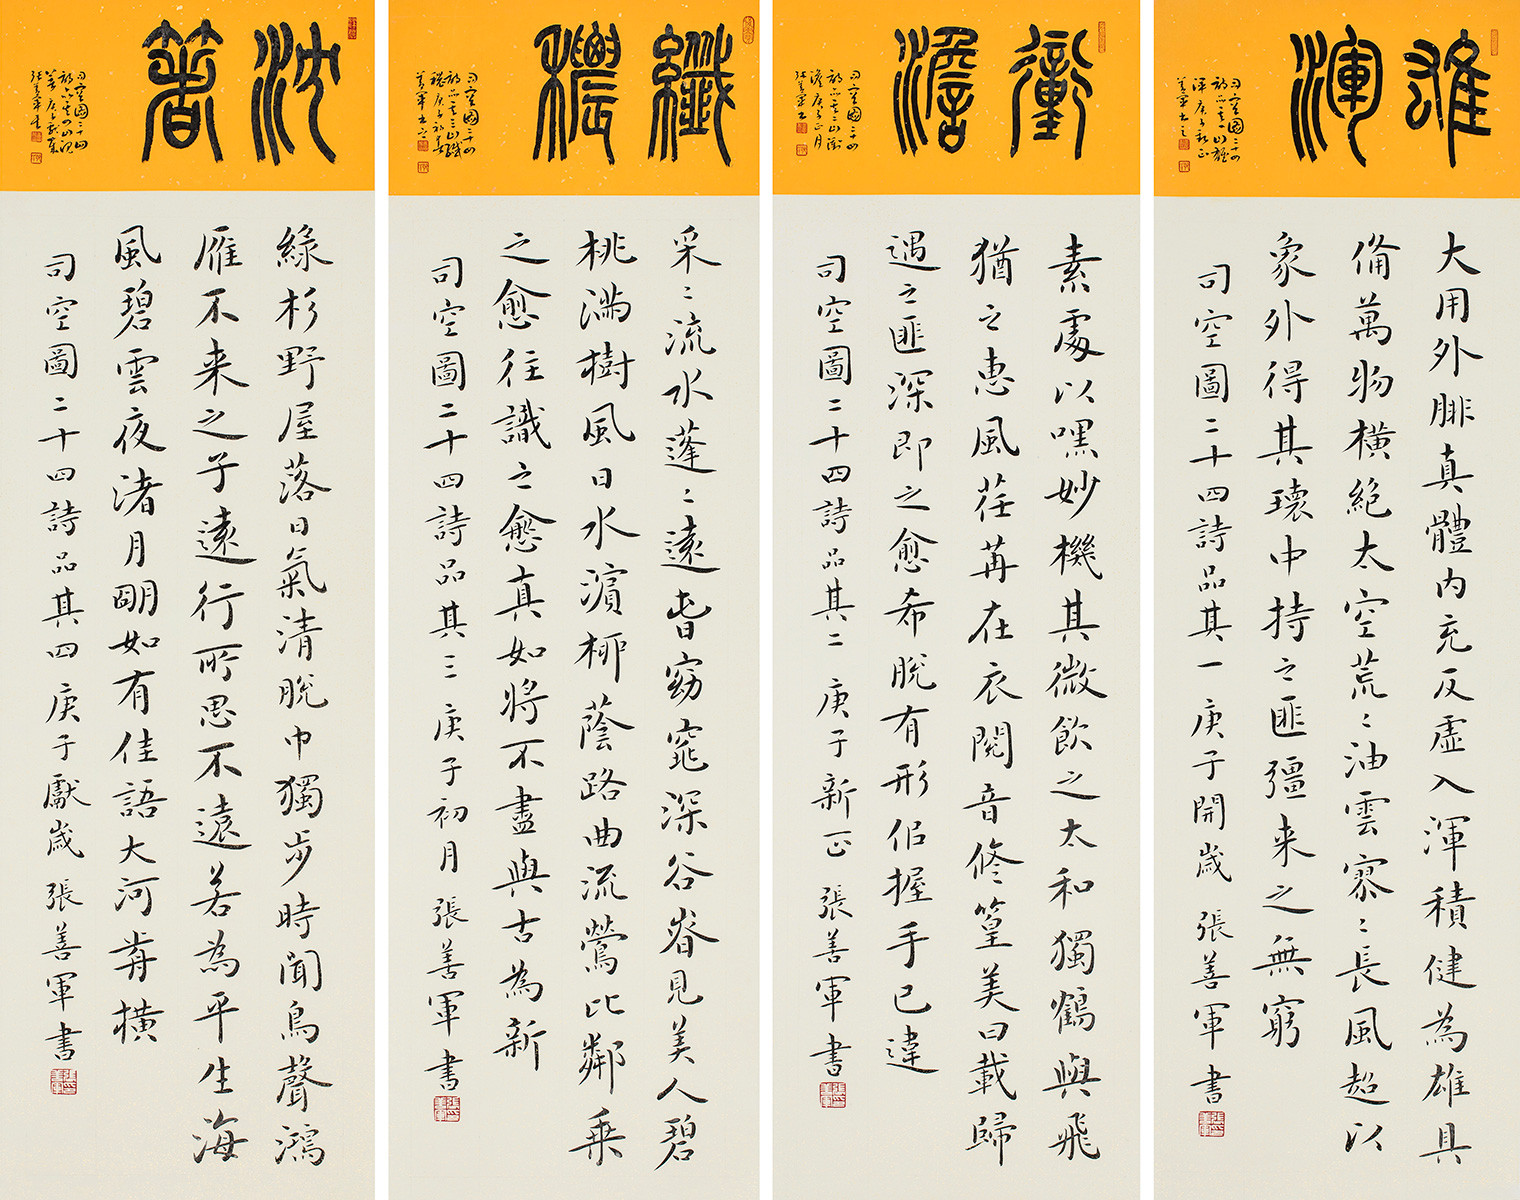 雄渾
司空圖二十四
詩品其一曰雄
渾庚子新正
善軍書之
大用外腓真體內充反虛入渾積健為雄具
備萬物橫絕太空荒〻油雲寥〻長風超以
象外得其環中持之匪彊来之無窮
司空圖二十四詩品其一 庚子開歲 張善軍書
衝澹
司空圖二十四
詩品其二曰衝
澹庚子正月
張善軍書
素處以嘿妙機其微飲之太和獨鶴與飛
猶之惠風荏苒在衣閱音修篁美曰載歸
遇之匪深即之愈希脫有形佀握手已違
司空圖二十四詩品其二 庚子新正 張善軍書
纖穠
司空圖二十四
詩品其三曰纖
穠庚子初春
善軍書之
采〻流水蓬〻遠旾窈窕深谷旹見美人碧
桃滿樹風日水濱桺蔭路曲流鶯比鄰乘
之愈往識之愈真如將不盡與古為新
司空圖二十四詩品其三 庚子初月 張善軍書
沈著
司空圖二十四
詩品其四曰沈
張善軍書
綠杉野屋落日氣清脫巾獨步時聞鳥聲鴻
雁不来之子遠行所思不遠若為平生海
風碧雲夜渚月朙如有佳語大河前橫
司空圖二十四詩品其四 庚子獻歲 張善軍書